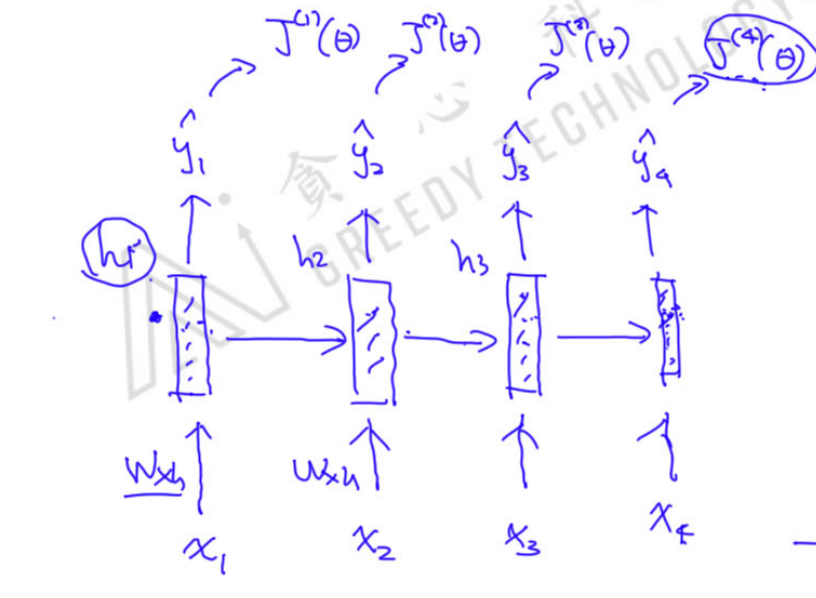 J⁽¹⁾(θ) J⁽²⁾(θ) J⁽³⁾(θ) J⁽⁴⁾(θ)
ŷ₁ ŷ₂ ŷ₃ ŷ₄
h₁ h₂ h₃
Wxh Wxh
x₁ x₂ x₃ x₄
贪心科
GREEDY TECHNOLOGY